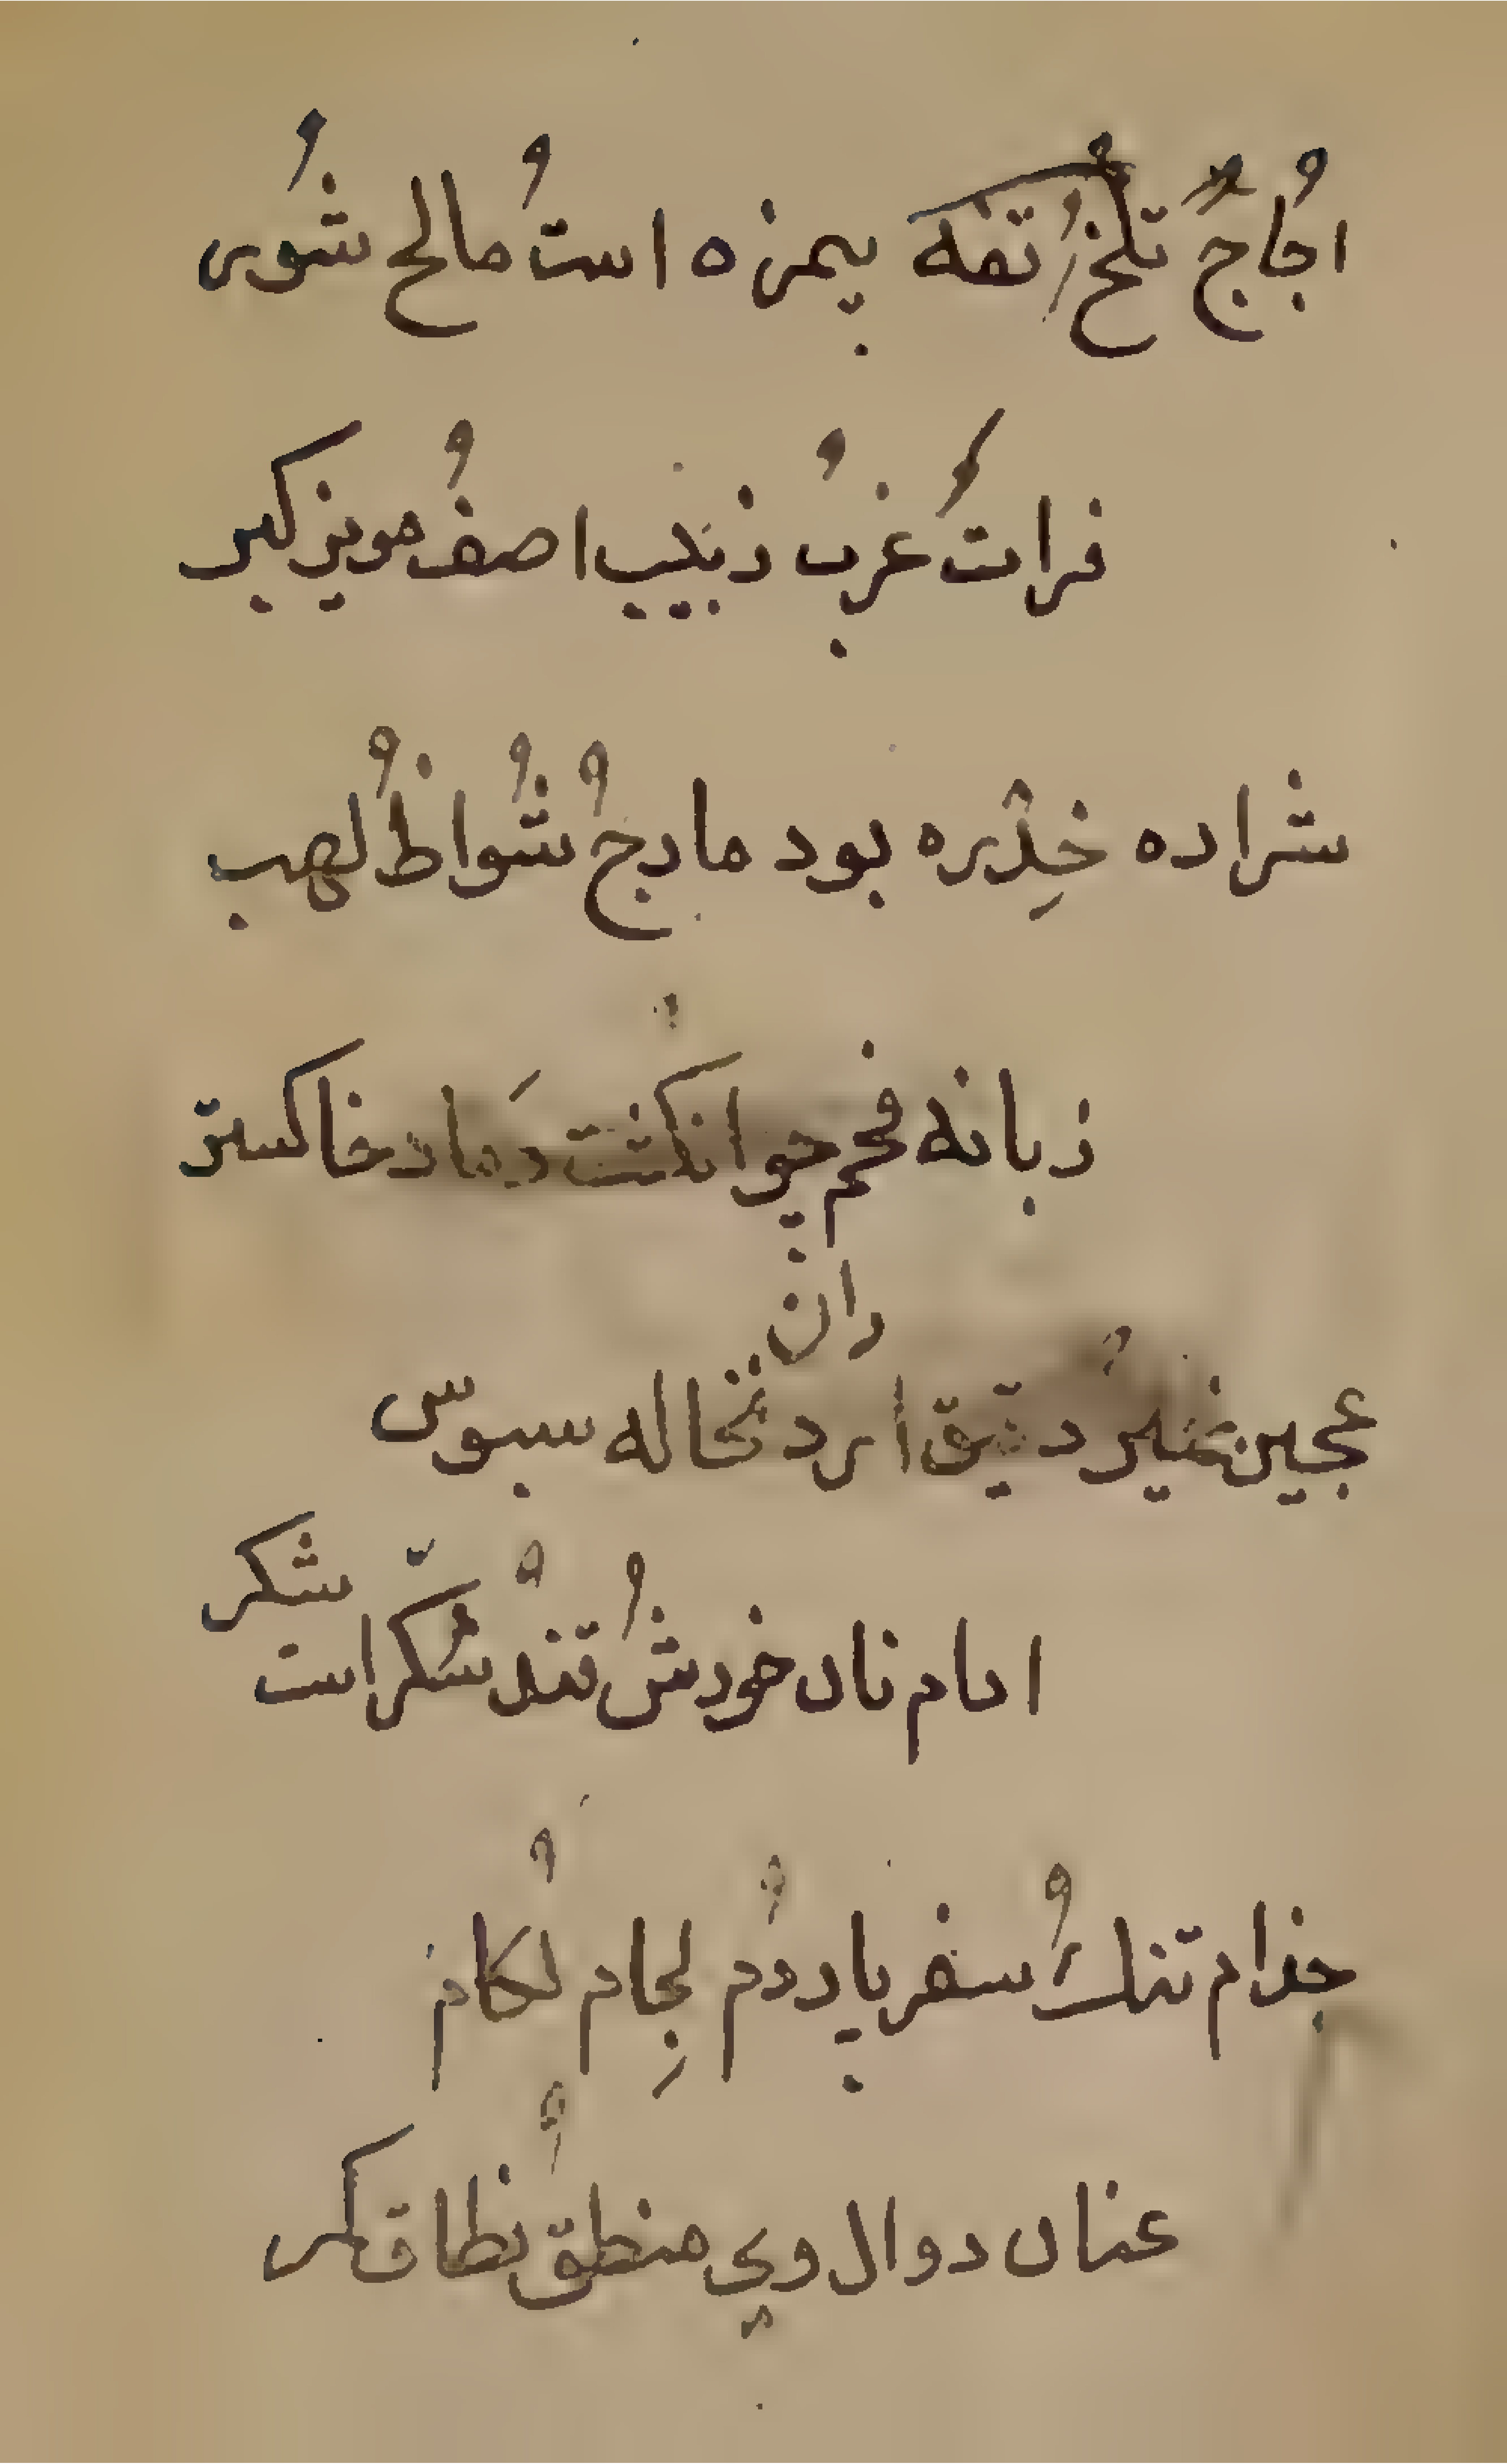 اجُاجٌ تلخ تفه بیمزه است مالح شُور
فرات عذب زبیب اصف مویز کبر
شراره خدره بود مارج شُواظ لهب
زبانه فحم چو انکشت رَماد خاکستر
ران
عجین خمیر دقیق ارد نخاله سبوس
ادام نان خورش قند سُکّر است شکر
حزام تنك سفر پاردم لجِام لکام
عنان دوال وی منطق نطاق کمر